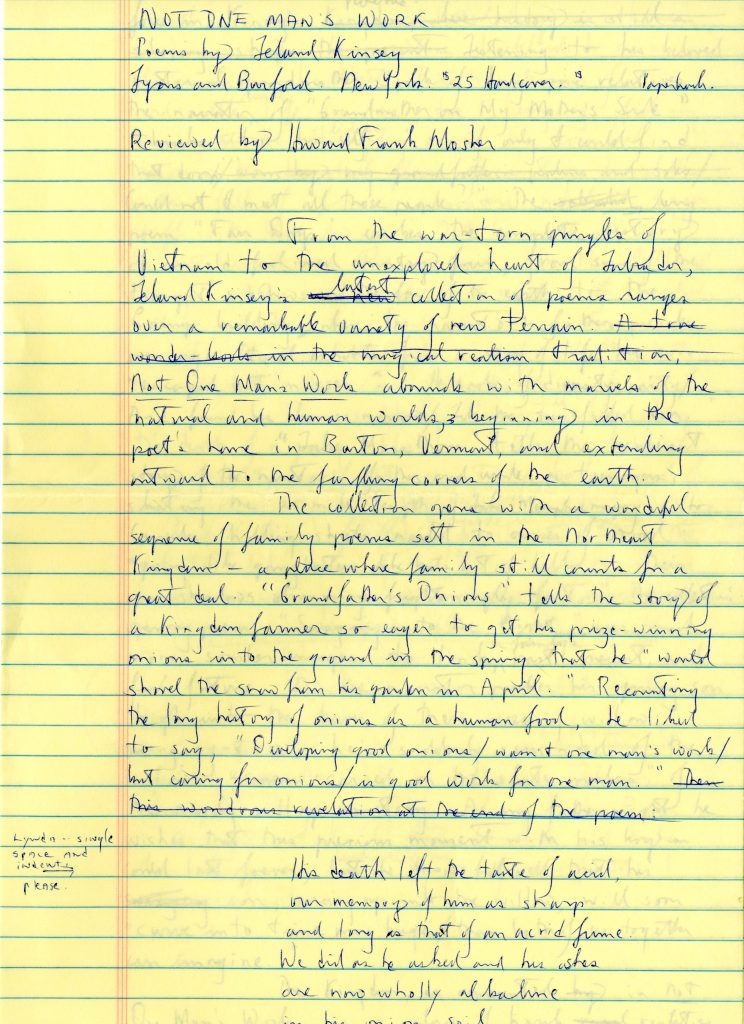 NOT ONE MAN'S WORK
Poems by Leland Kinsey
Lyons and Burford. New York. $25 Hardcover. $ Paperback.
Reviewed by Howard Frank Mosher
From the war-torn jungles of
Vietnam to the unexplored heart of Labrador,
Leland Kinsey's new latest collection of poems ranges
over a remarkable variety of new terrain. A true
wonder-book in the magical realism tradition,
Not One Man's Work abounds with marvels of the
natural and human worlds, beginning in the
poet's home in Barton, Vermont, and extending
outward to the farflung corners of the earth.
The collection opens with a wonderful
sequence of family poems set in the Northeast
Kingdom - a place where family still counts for a
great deal. "Grandfather's Onions" tells the story of
a Kingdom farmer so eager to get his prize-winning
onions into the ground in the spring that he "would
shovel the snow from his garden in April." Recounting
the long history of onions as a human food, he liked
to say, "Developing good onions/ wasn't one man's work/
but caring for onions/ is good work for one man." Then
this wondrous revelation at the end of the poem:
Lynda - single
space and
indent
please.
His death left the taste of acid,
our memory of him as sharp
and long as that of an acrid fume.
We did as he asked and his ashes
are now wholly alkaline
in his onion soil